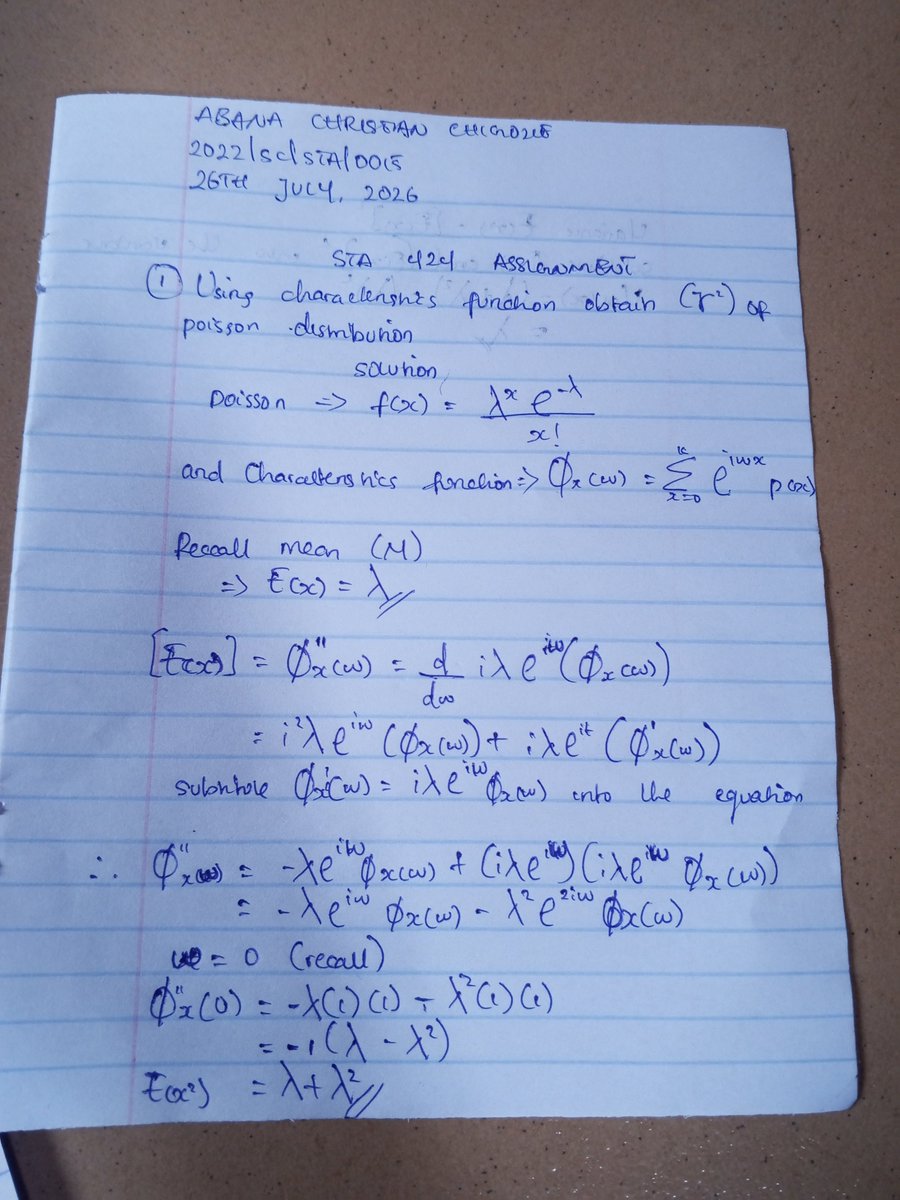 ABANA CHRISTIAN CHIGOZIE
2022/SC/STA/0015
26TH JULY, 2026
STA 424 ASSIGNMENT
① Using characteristics function obtain (σ²) of
poisson distribution
solution
poisson => f(x) = λ^x e^-λ / x!
and Characteristics function => Φx(w) = Σ_{x=0}^{k} e^{iwx} p(x)
Reccall mean (M)
=> E(x) = λ//
[E(x²)] = Φ''x(w) = d/dw iλe^{iw} (Φx(w))
= i²λe^{iw} (Φx(w)) + iλe^{it} (Φ'x(w))
Φ'x(w) = iλe^{iw} Φx(w) into the equation
∴ Φ''x(w) = -λe^{iw} Φx(w) + (iλe^{iw})(iλe^{iw} Φx(w))
= -λe^{iw} Φx(w) - λ²e^{2iw} Φx(w)
w = 0 (recall)
Φ''x(0) = -λ(1)(1) - λ²(1)(1)
= -1(λ - λ²)
E(x²) = λ + λ²//